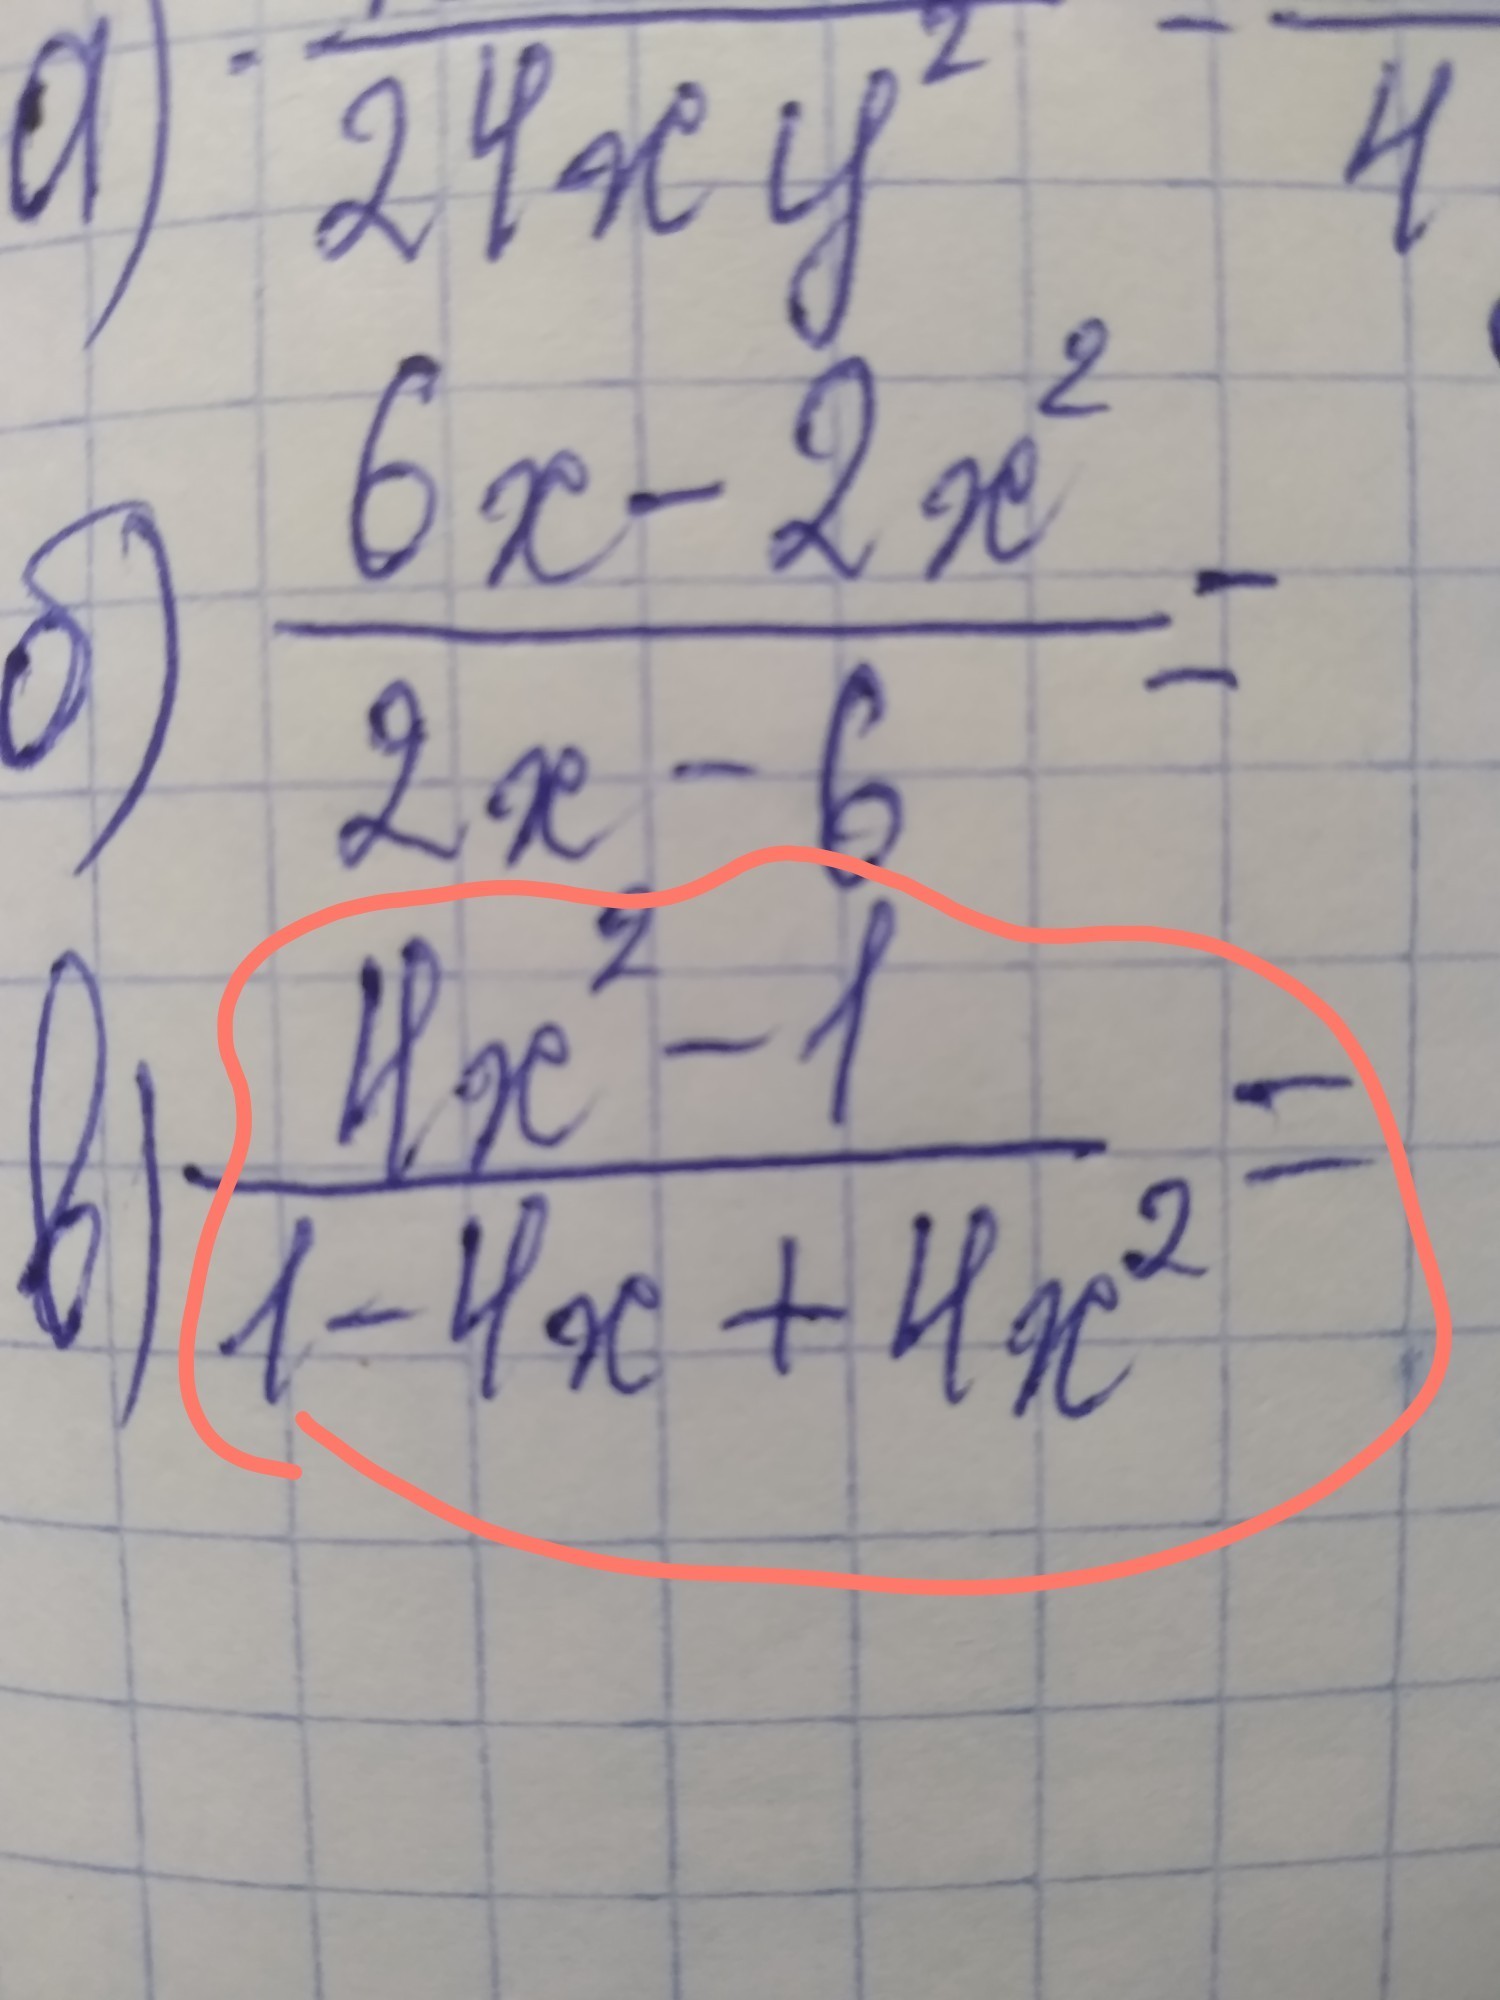 а) - 24xy² - 4
б) 6x - 2x² =
2x - 6
в) 4x² - 1 =
1 - 4x + 4x²